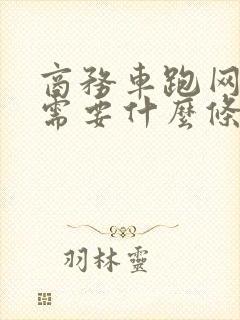 商務車跑网
需要什麼條
羽林靈